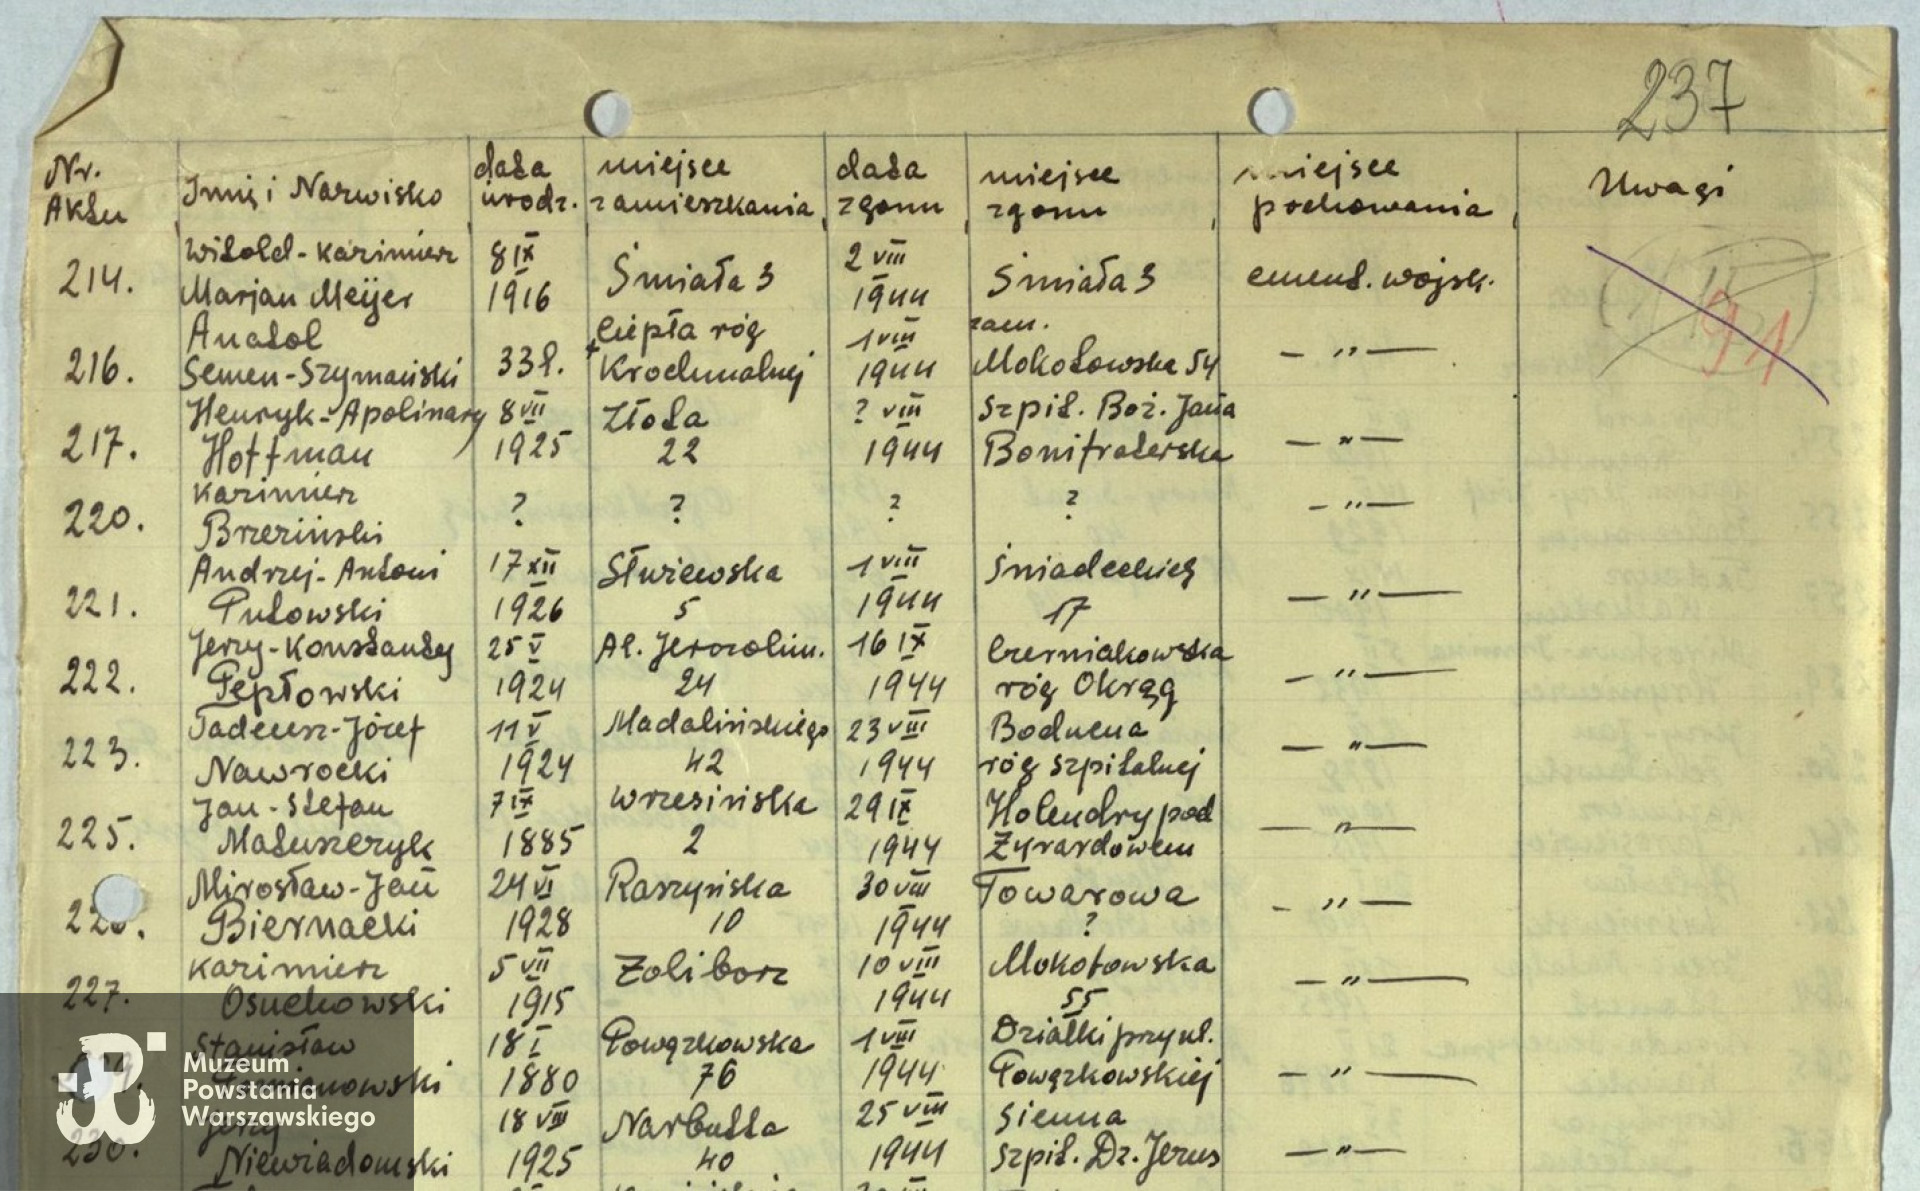 237
Nr. Aktu
Imię i Nazwisko
data urodz.
miejsce zamieszkania
data zgonu
miejsce zgonu
miejsce pochowania
Uwagi
214. Witold-Kazimierz Marjan Meijer 8 IX 1916 Śmiała 3 2 VIII 1944 Śmiała 3 cment. wojsk. 91
216. Anatol Semen-Szymański 33 l. Ciepła róg Krochmalnej 1 VIII 1944 zam. Mokotowska 54 — " —
217. Henryk-Apolinary Hoffman 8 VII 1925 Złota 22 ? VIII 1944 Szpit. Boż. Jana Bonifraterska — " —
220. Kazimierz Brzeziński ? ? ? ? — " —
221. Andrzej-Antoni Putowski 17 XII 1926 Służewska 5 1 VIII 1944 Śniadeckich 17 — " —
222. Jerzy-Konstanty Pepłowski 25 V 1924 Al. Jerozolim. 24 16 IX 1944 Czerniakowska róg Okrąg — " —
223. Tadeusz-Józef Nawrocki 11 V 1924 Madalińskiego 42 23 VIII 1944 Boduena róg Szpitalnej — " —
225. Jan-Stefan Matuszczyk 7 IX 1885 Wrzesińska 2 29 IX 1944 Holendry pod Żyrardowem — " —
Mirosław-Jan Biernacki 24 VI 1928 Raszyńska 10 30 VIII 1944 Towarowa ? — " —
227. Kazimierz Osuchowski 5 VII 1915 Żoliborz 10 VIII 1944 Mokotowska 55 — " —
Stanisław 18 I 1880 Powązkowska 76 1 VIII 1944 Działki przy ul. Powązkowskiej — " —
230. Jerzy Niewiadomski 18 VIII 1925 Narbutta 40 25 VIII 1944 Sienna szpit. Dz. Jezus — " —
Muzeum
Powstania
Warszawskiego